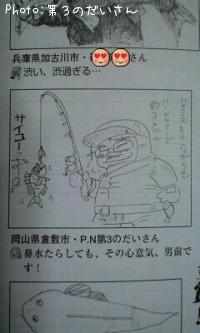 Photo:第3のだいさん
兵庫県加古川市・😍😍さん
渋い、渋過ぎる…
サイコー
岡山県倉敷市・P.N第3のだいさん
鼻水たらしても、その心意気、男前で
す!